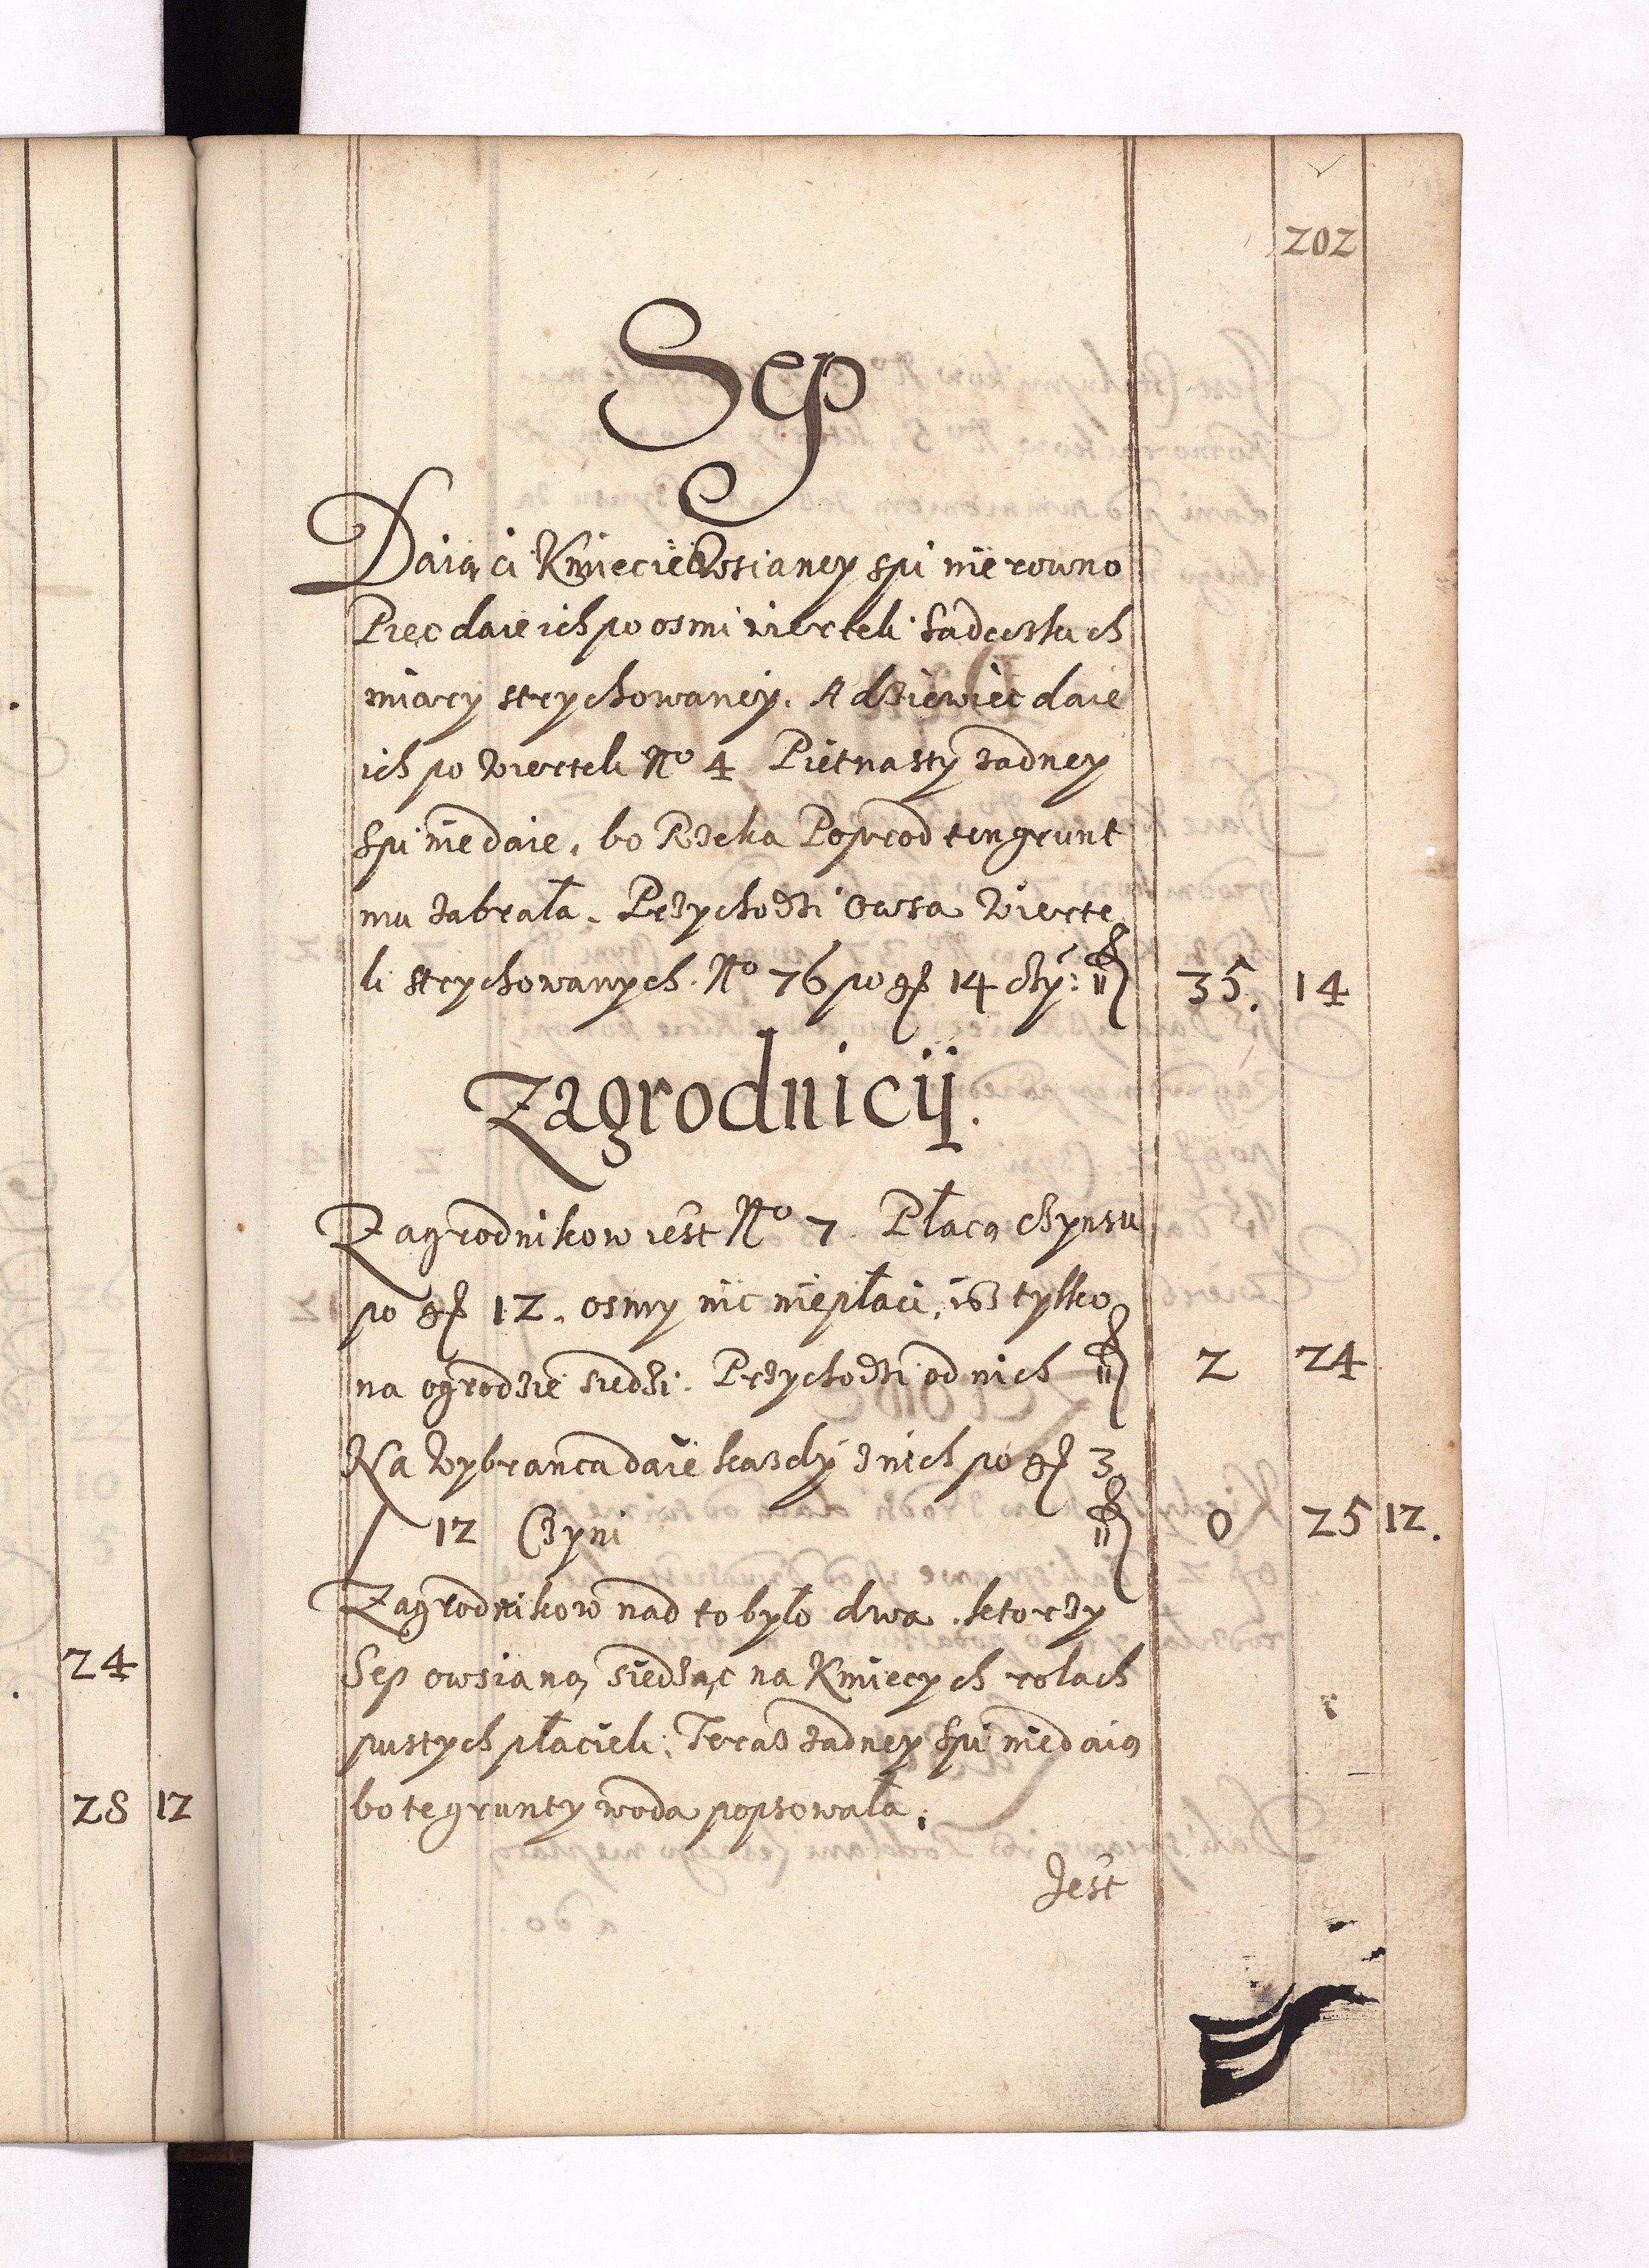 202
Sep
Daią ci Kmiecie Owsianey spi nie rowno
Pięc daie ich po osmi wierteli Sądeczkich
miary strychowaney. A dziewięc daie
ich po wierteli No 4 Piętnasty żadney
spi nie daie, bo Rzeka Poprod ten grunt
mu zabrała. Przychodzi Owsa Wierte
li strychowanych. No 76 po gr 14 czy: fl 35. 14
Zagrodnicy.
Zagrodnikow iest No 7. Płacą czynsu
po gr 12. osmy nic nie płaci, isz tylko
na ogrodzie siedzi. Przychodzi od nich fl 2 24
Na Wybranca daie kazdy z nich po gr 3
/ 12 Czyni fl 0 25 12.
Zagrodnikow nad to było dwa. ktorzy
Sep owsianą siedząc na Kmiecych rolach
pustych płacieli. Teraz żadney spi nie daią
bo te grunty woda popsowała.
Jest
24
28 12